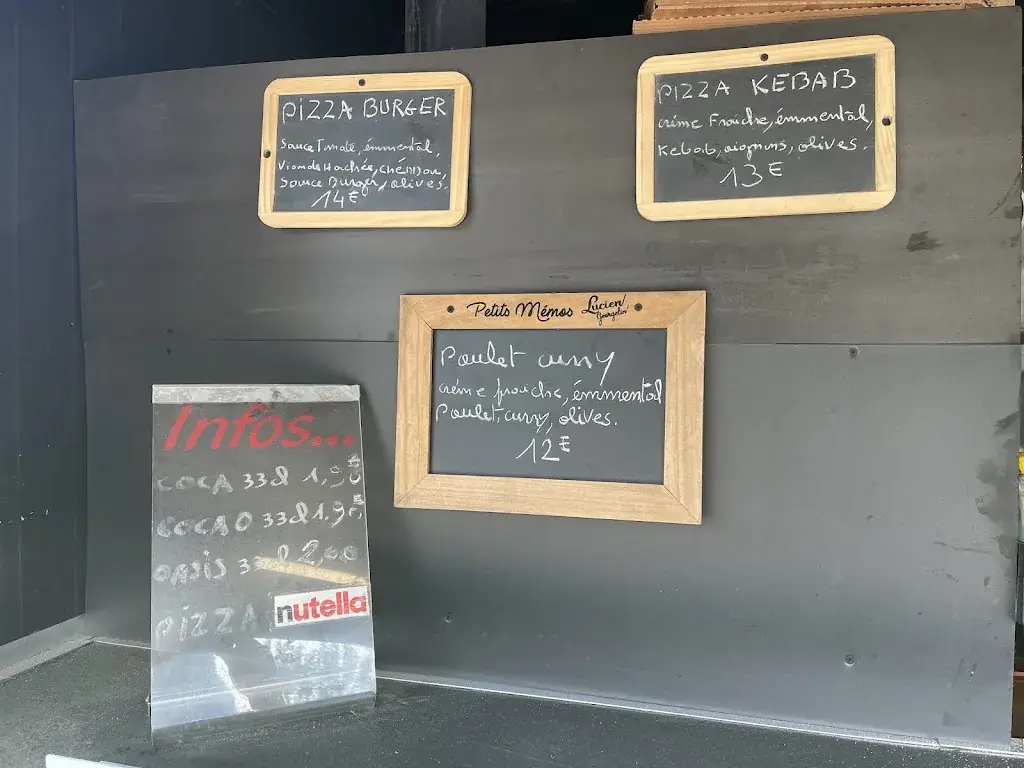 PIZZA BURGER
Sauce Tomate, émmental,
Viande Hachée, chéddar,
Sauce Burger, olives.
14€
PIZZA KEBAB
créme Fraiche, émmental,
Kebab, oignons, olives.
13€
Petits Mémos Lucien Georgelin
Poulet curry
créme fraiche, émmental
Poulet, curry, olives.
12€
Infos...
COCA 33cl 1,90€
COCA O 33cl 1,90€
OASIS 33cl 2,00
PIZZA nutella